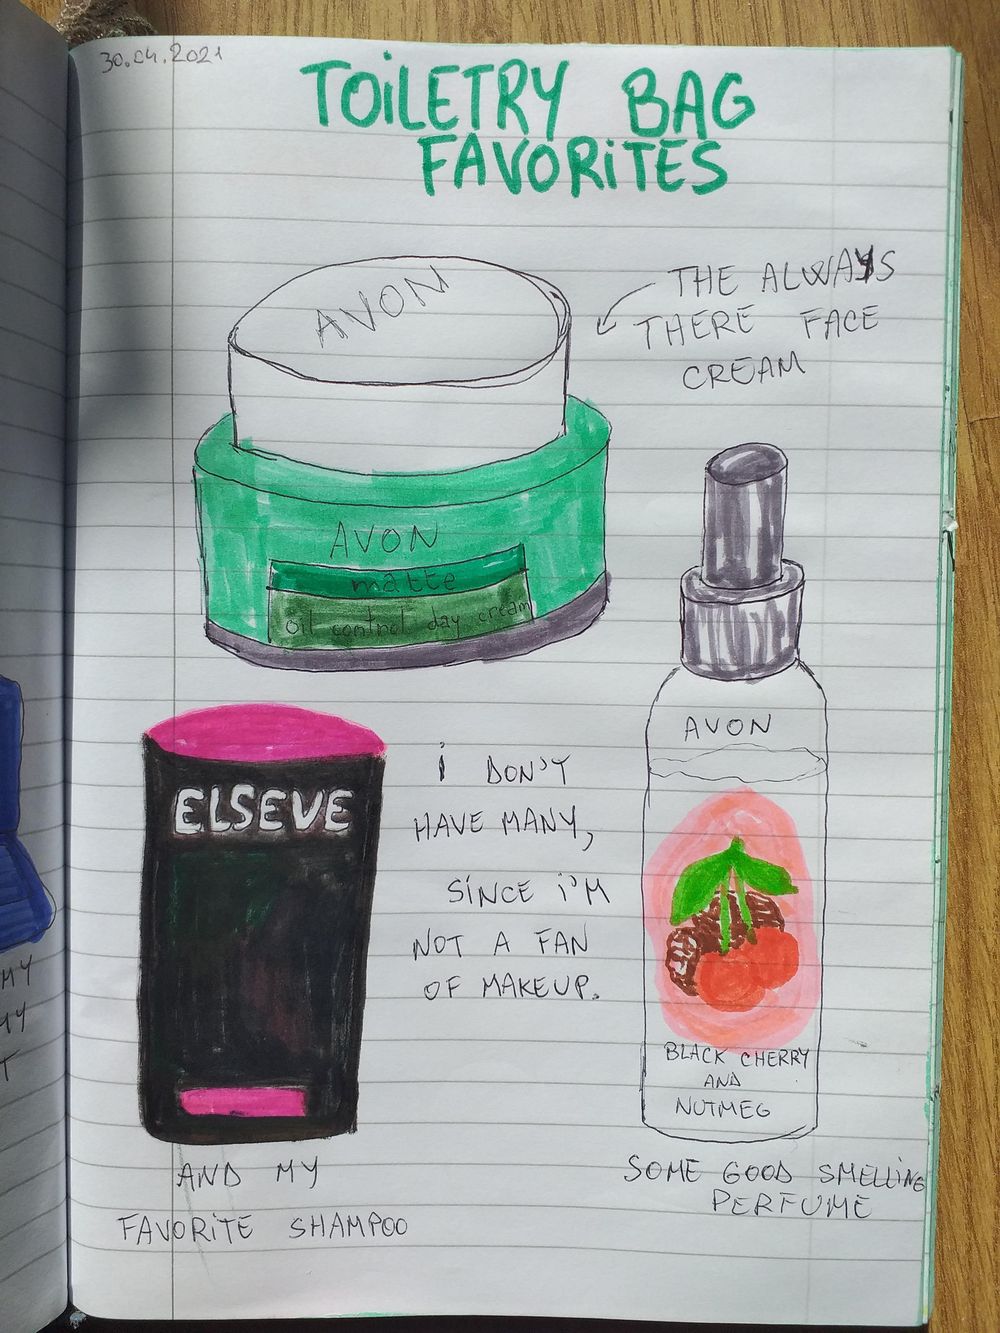 30.04.2021
TOiLETRY BAG
FAVORiTES
AVON
THE ALWAYS
THERE FACE
CREAM
AVON
matte
oil control day cream
AVON
ELSEVE
i DON'T
HAVE MANY,
SiNCE i'M
NOT A FAN
OF MAKEUP.
BLACK CHERRY
AND
NUTMEG
AND MY
FAVORiTE SHAMPOO
SOME GOOD SMELLiNG
PERFUME
MY
T